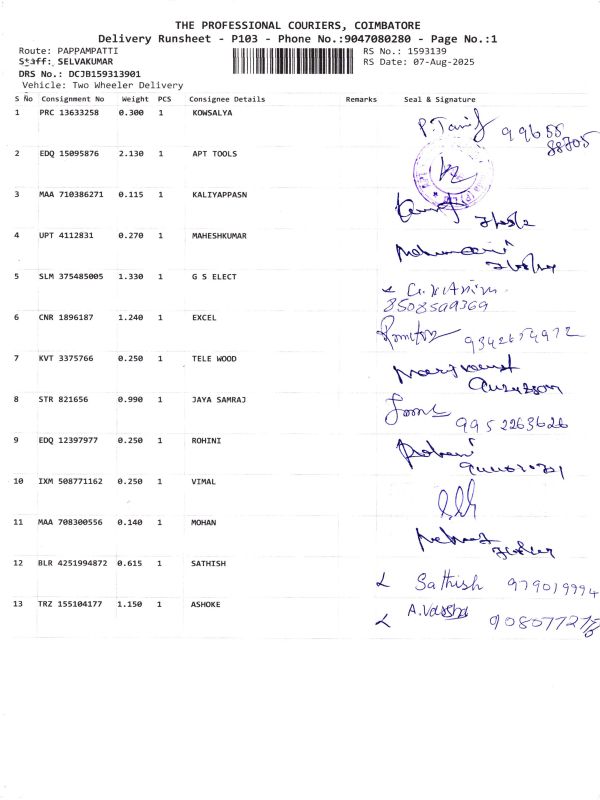 THE PROFESSIONAL COURIERS, COIMBATORE
Delivery Runsheet - P103 - Phone No.:9047080280 - Page No.:1
Route: PAPPAMPATTI RS No.: 1593139
Staff: SELVAKUMAR RS Date: 07-Aug-2025
DRS No.: DCJB159313901
Vehicle: Two Wheeler Delivery
S No Consignment No Weight PCS Consignee Details Remarks Seal & Signature
1 PRC 13633258 0.300 1 KOWSALYA 99655
88705
2 EDQ 15095876 2.130 1 APT TOOLS
3 MAA 710386271 0.115 1 KALIYAPPASN
4 UPT 4112831 0.270 1 MAHESHKUMAR
5 SLM 375485005 1.330 1 G S ELECT
8508509369
6 CNR 1896187 1.240 1 EXCEL
7 KVT 3375766 0.250 1 TELE WOOD
8 STR 821656 0.990 1 JAYA SAMRAJ
9952263626
9 EDQ 12397977 0.250 1 ROHINI
10 IXM 508771162 0.250 1 VIMAL
11 MAA 708300556 0.140 1 MOHAN
12 BLR 4251994872 0.615 1 SATHISH Sathish 979019994
13 TRZ 155104177 1.150 1 ASHOKE